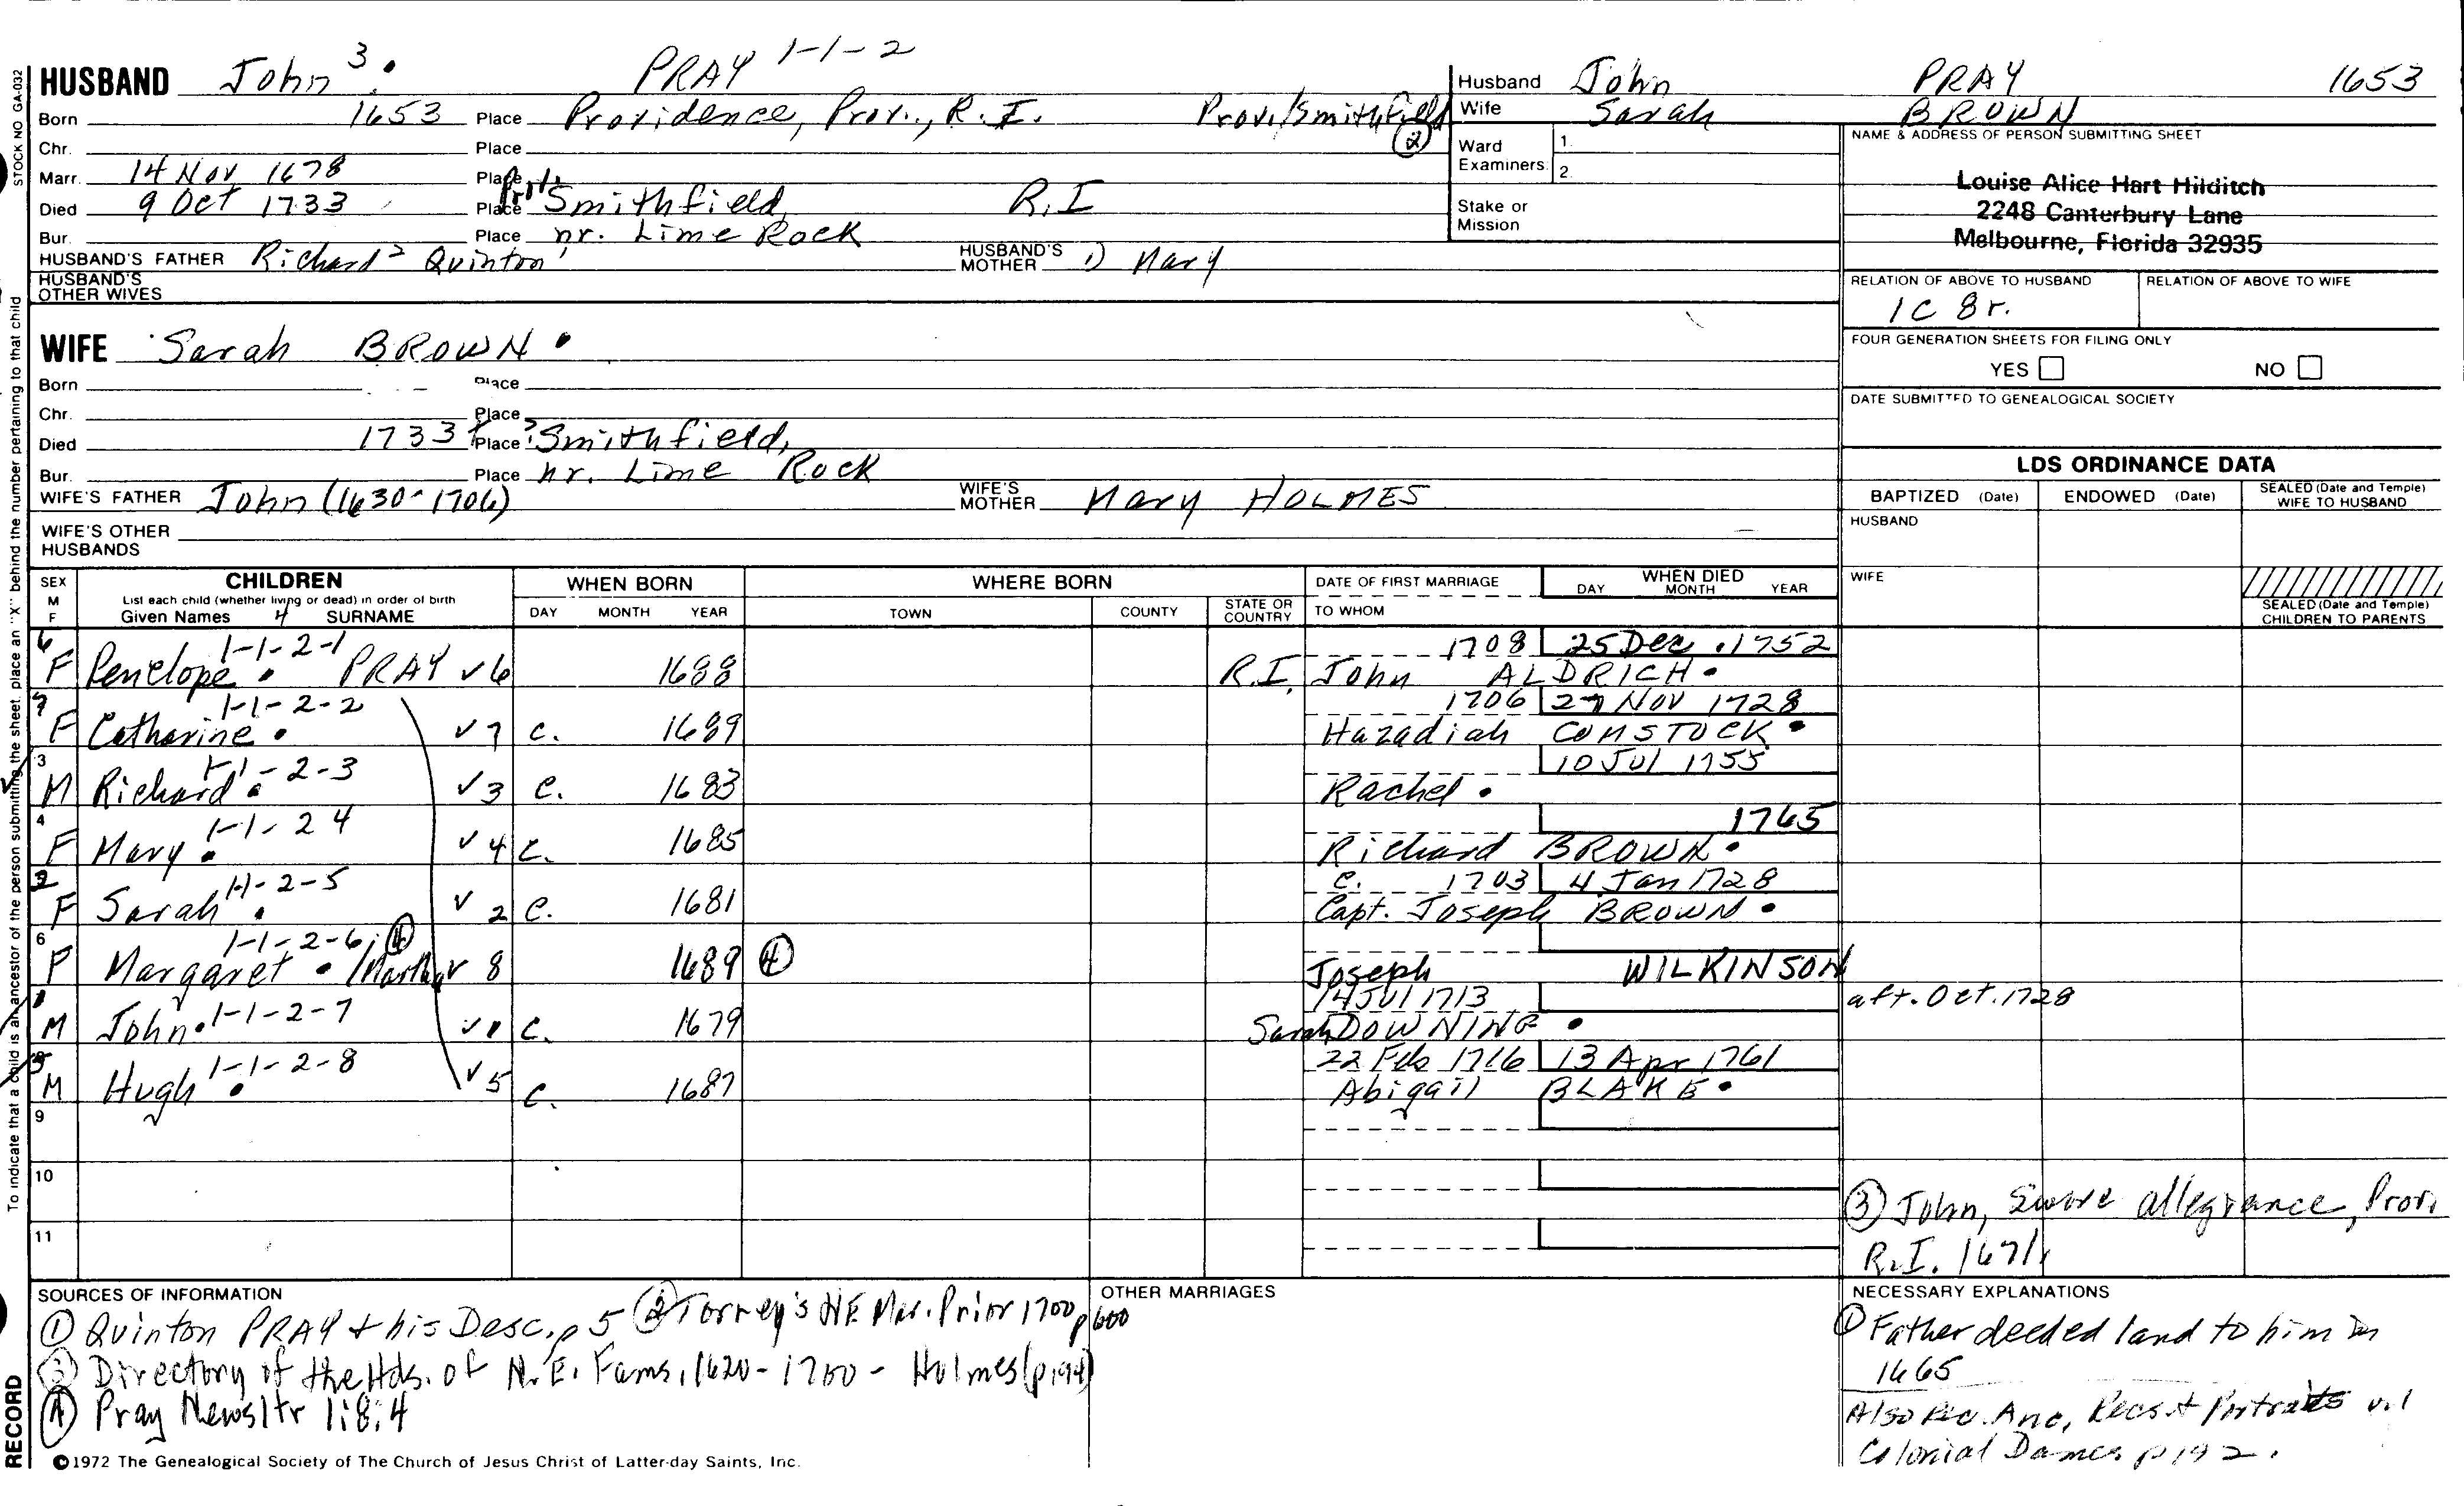 HUSBAND John 3. PRAY 1-1-2
Born 1653 Place Providence, Prov., R.I. Prov./Smithfield
Chr. Place (2)
Marr. 14 Nov 1678 Place
Died 9 Oct 1733 Place Smithfield, R.I
Bur. Place nr. Lime Rock
HUSBAND'S FATHER Richard 2 Quinton 1 HUSBAND'S MOTHER 1) Mary
HUSBAND'S OTHER WIVES
WIFE Sarah BROWN
Born Place
Chr. Place
Died 1733+ Place ? Smithfield,
Bur. Place nr. Lime Rock
WIFE'S FATHER John (1630-1706) WIFE'S MOTHER Mary HOLMES
WIFE'S OTHER HUSBANDS
Husband John PRAY 1653
Wife Sarah BROWN
Ward Examiners 1. 2.
Stake or Mission
NAME & ADDRESS OF PERSON SUBMITTING SHEET
Louise Alice Hart Hilditch
2248 Canterbury Lane
Melbourne, Florida 32935
RELATION OF ABOVE TO HUSBAND RELATION OF ABOVE TO WIFE
1C 8r.
FOUR GENERATION SHEETS FOR FILING ONLY
YES NO
DATE SUBMITTED TO GENEALOGICAL SOCIETY
LDS ORDINANCE DATA
BAPTIZED (Date) ENDOWED (Date) SEALED (Date and Temple) WIFE TO HUSBAND
HUSBAND
WIFE
SEALED (Date and Temple) CHILDREN TO PARENTS
SEX M F CHILDREN WHEN BORN WHERE BORN DATE OF FIRST MARRIAGE WHEN DIED
List each child (whether living or dead) in order of birth DAY MONTH YEAR
Given Names 4 SURNAME DAY MONTH YEAR TOWN COUNTY STATE OR COUNTRY TO WHOM
6 1-1-2-1 1708 25 Dec 1752
F Penelope PRAY ✓ 6 1688 R.I. John ALDRICH
7 1-1-2-2 1706 27 Nov 1728
F Catharine ✓ 7 c. 1689 Hazadiah COMSTOCK
3 1-1-2-3 10 Jul 1755
M Richard ✓ 3 c. 1683 Rachel
4 1-1-2 4 1765
F Mary ✓ 4 c. 1685 Richard BROWN
2 1-1-2-5 c. 1703 4 Jan 1728
F Sarah ✓ 2 c. 1681 Capt. Joseph BROWN
6 1-1-2-6; (4)
F Margaret /Martha ✓ 8 1689 (4) Joseph WILKINSON
1 14 Jul 1713 aft. Oct. 1728
M John 1-1-2-7 ✓ 1 c. 1679 Sarah DOWNING
1-1-2-8 22 Feb 1716 13 Apr 1761
M Hugh ✓ 5 c. 1687 Abigail BLAKE
9
10
11
(3) John, Swore allegiance, Prov.
R.I. 1671
SOURCES OF INFORMATION
(1) Quinton PRAY + his Desc. p 5 (2) Torrey's NE Mar. Prior 1700 p600
(3) Directory of the Hds. of N.E. Fams, 1620-1700 - Holmes (p 194)
(4) Pray Newsltr 1:8:4
OTHER MARRIAGES
NECESSARY EXPLANATIONS
(1) Father deeded land to him in
1665
Also Anc, Recs + Portraits v.1
Colonial Dames p 192.
©1972 The Genealogical Society of The Church of Jesus Christ of Latter-day Saints, Inc.
STOCK NO GA-032
To indicate that a child is an ancestor of the person submitting the sheet, place an "X" behind the number pertaining to that child
RECORD